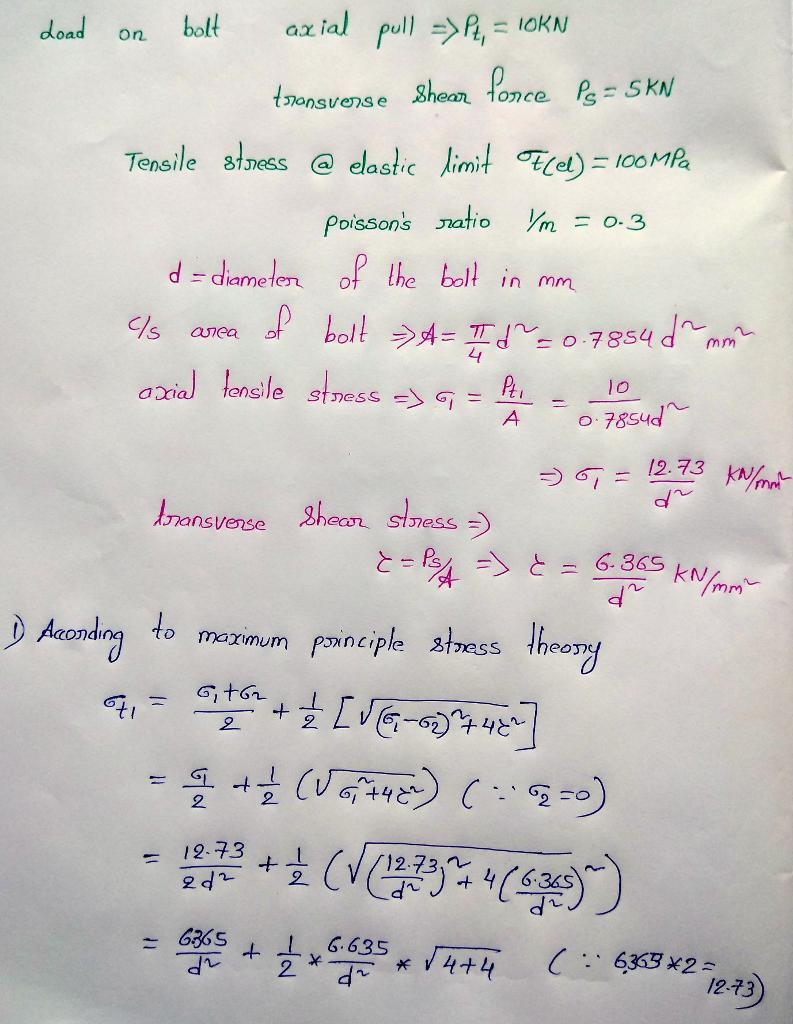 Load on bolt axial pull => Pt₁ = 10KN
transverse shear force Ps = 5KN
Tensile stress @ elastic limit σt(el) = 100MPa
poisson's ratio 1/m = 0.3
d = diameter of the bolt in mm
c/s area of bolt => A = π/4 d² = 0.7854 d² mm²
axial tensile stress => σ₁ = Pt₁/A = 10/0.7854d²
=> σ₁ = 12.73/d² KN/mm²
transverse shear stress =>
τ = Ps/A => τ = 6.365/d² KN/mm²
1) According to maximum principle stress theory
σt₁ = (σ₁+σ₂)/2 + 1/2 [√((σ₁-σ₂)²+4τ²)]
= σ₁/2 + 1/2 (√(σ₁²+4τ²)) (∵ σ₂=0)
= 12.73/2d² + 1/2 (√((12.73/d²)² + 4(6.365/d²)²))
= 6365/d² + 1/2 * 6.635/d² * √(4+4) (∵ 6.365*2=
12.73)